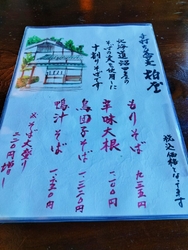 手打ち蕎麦 柏屋
北海道沼田産の
そばの実を使用した
十割そばです
税込価格となってます
もりそば 九三五円
辛味大根 一一〇〇円
鳥団子そば 一三二〇円
鴨汁そば 一六五〇円
そば大盛り
二二〇円増し